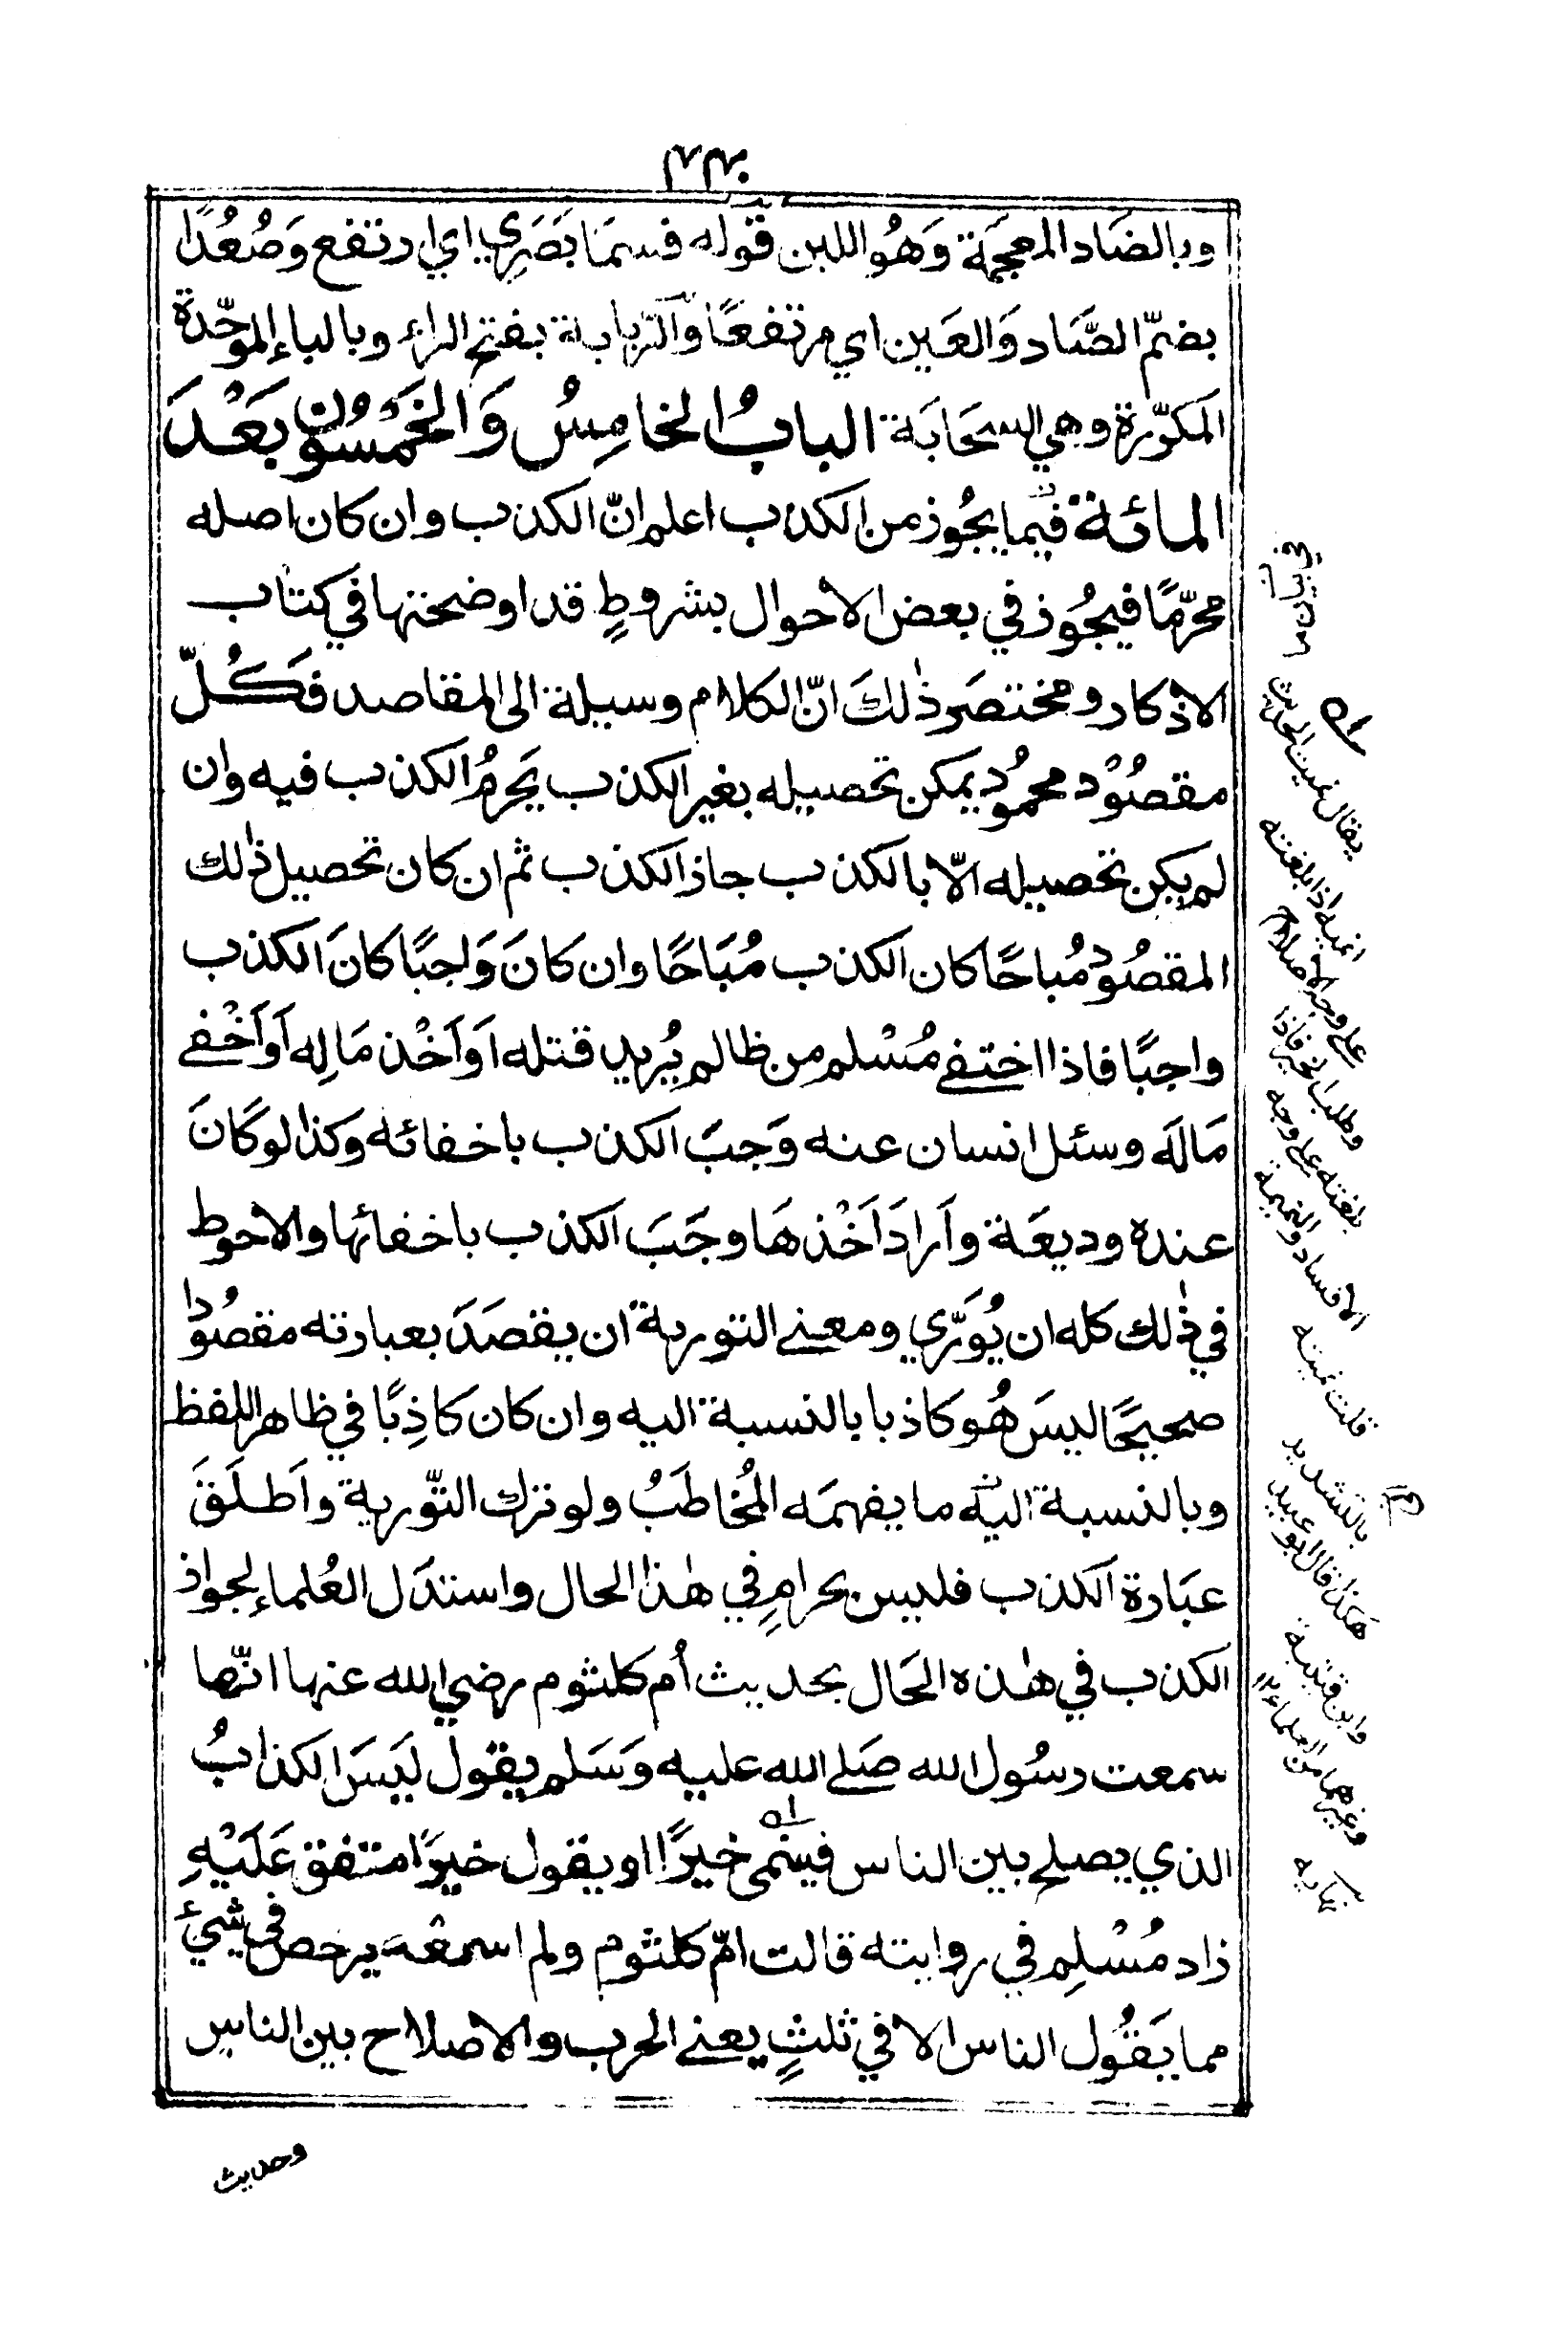 وبالضَاد المعجمَة وَهُو اللبن قوله فسمَا بَصَرِي اي ارتفع وَصُعُدًا
بضمّ الصَّاد وَالعَين اي مرتفعًا وَالرَّبابة بفتح الراء وبالباء الموحّدة
المكرّرة وهي السحَابَة البابُ الخامِسُ وَالخَمْسُون بَعْدَ
المائة فيما يجُوز من الكذب اعلم انّ الكذب وان كان اصله
محرّمًا فيجُوز في بعض الاحوال بشروطٍ قد اوضحتها في كتاب
الاذكار ومختصَر ذٰلكَ انّ الكلام وسيلة الى المقاصد فكُلّ
مقصُوْد محمُود يمكن تحصيله بغير الكذب يَحرمُ الكذب فيه وان
لم يكن تحصيله الّا بالكذب جاز الكذب ثم ان كان تحصيل ذٰلك
المقصُود مُباحًا كان الكذب مُبَاحًا وان كانَ وَاجبًا كانَ الكذب
واجبًا فاذا اختفى مُسْلم من ظالم يُريد قتله اَو اَخْذ مَالِه اَو اَخْفى
مَالَه وسئل انسان عنه وَجبَ الكذب باخفائه وكذا لو كَانَ
عنده وديعَة واَرادَ اَخْذهَا وجَبَ الكذب باخفائها والاحوط
في ذٰلك كله ان يُوَرّي ومعنى التورية ان يقصَدَ بعبارته مقصُودا
صحيحًا ليسَ هُو كاذبا بالنسبة اليه وان كان كاذِبًا في ظاهر اللفظ
وبالنسبة اليه ما يفهمَه المُخاطَبُ ولو ترك التّورية واَطلَقَ
عبَارة الكذب فليس بحرامٍ في هٰذا الحال واستدَل العُلماء لجواز
الكذب في هٰذه الحَال بحديث اُم كلثوم رضي الله عنها انّها
سمعت رسُول الله صَلى الله عليه وَسَلم يقول لَيسَ الكذابُ
الذي يصلح بين الناس فينمى خيرًا او يقول خيرًا متفق عَلَيْهِ
زاد مُسْلِم في روايته قالت امّ كلثوم ولم اسمعَه يرخص في شيئ
مما يَقُول الناس الا في ثلثٍ يعنى الحرب والاصلاح بين الناس
وحديث
في بيان ما
يقال نمين الحديث
انميه اذا بلغته
على وجه الاصلاح
وطلب الخير فاذا
بلغته على وجه
الافساد والنميمة
قلت نميته
بالتشديد
هكذا قال ابو عبيد
وابن قتيبة
وغيرهما من العلماء
نهايه